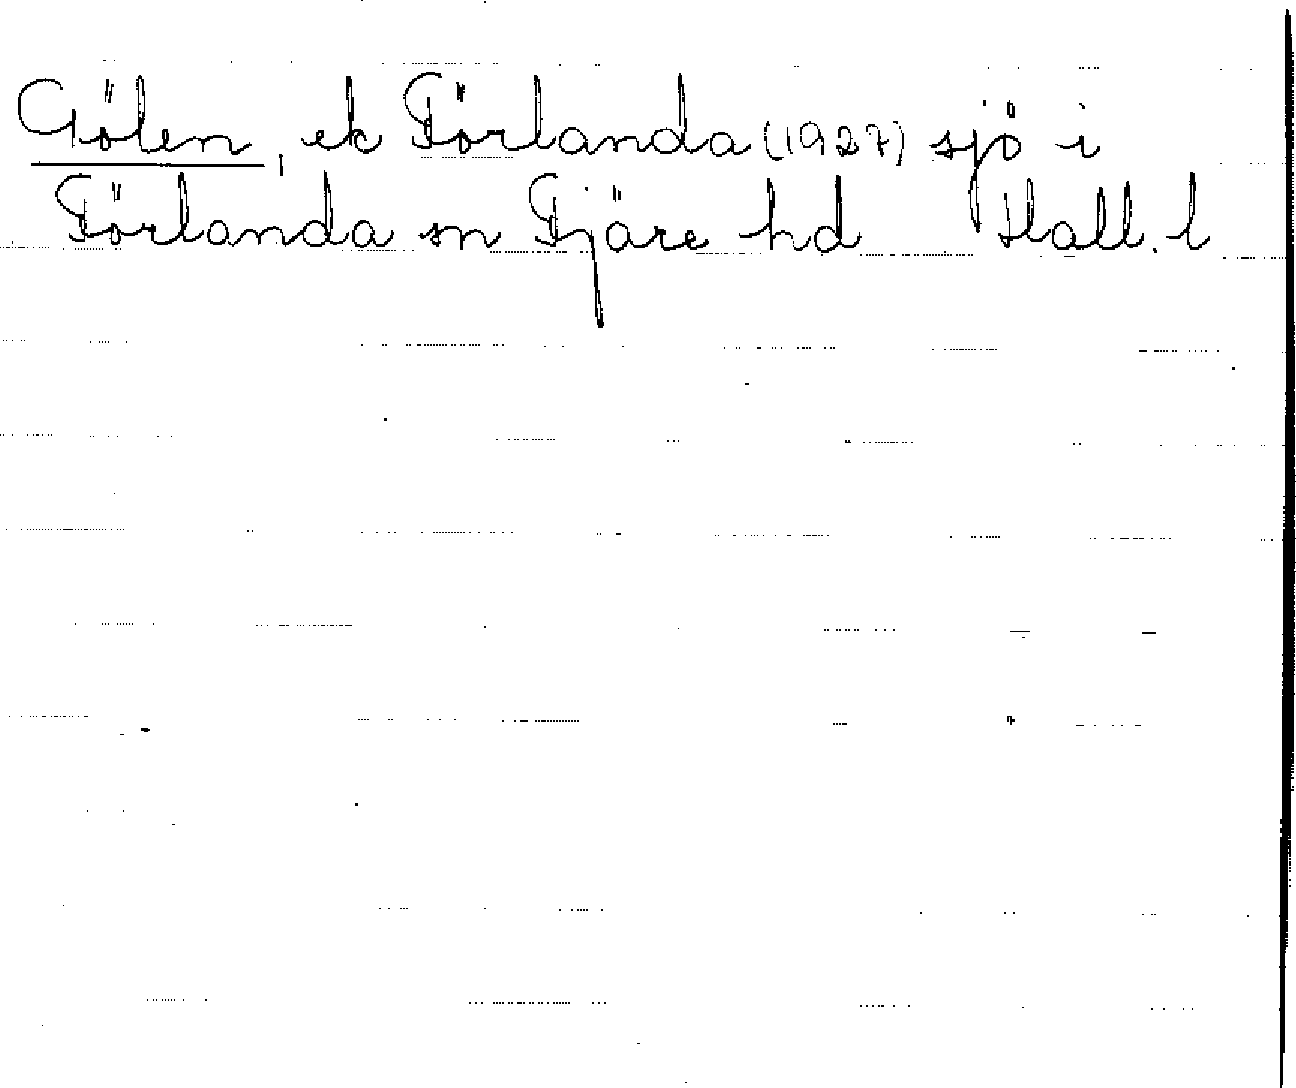 Gölen, ek Förlanda (1927) sjö i
Förlanda sn Fjäre hd Hall. l